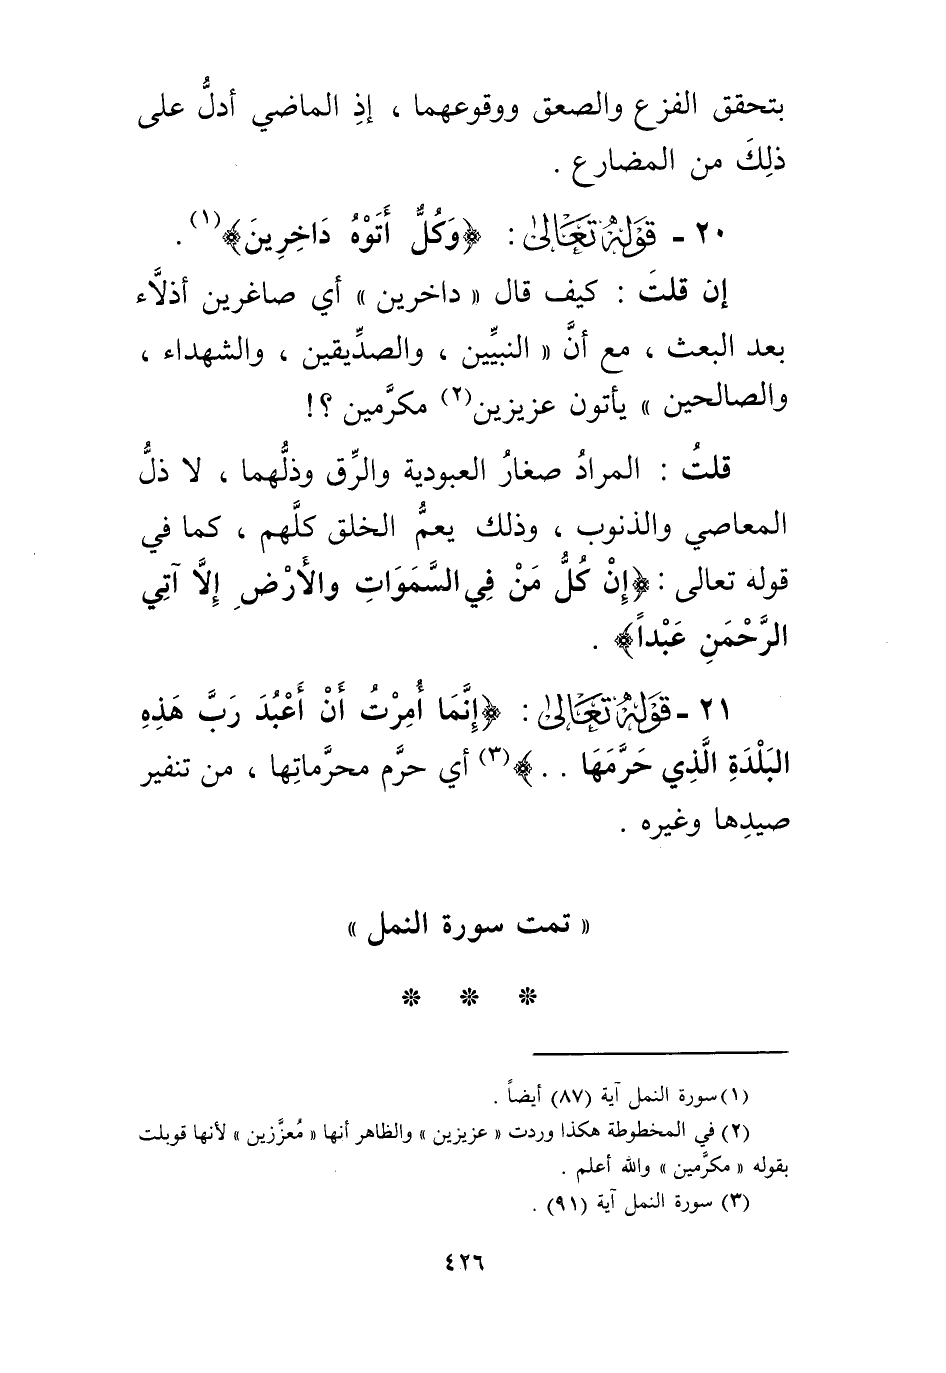 بتحقق الفزع والصعق ووقوعهما ، إذِ الماضي أدلُّ على
ذلِكَ من المضارع .
٢٠ - قَوْلهُ تَعَالىٰ : ﴿وَكُلٌّ أَتَوْهُ دَاخِرِينَ﴾(١) .
إن قلتَ : كيف قال « داخرين » أي صاغرين أذلَّاء
بعد البعث ، مع أنَّ « النبيِّين ، والصدِّيقين ، والشهداء ،
والصالحين » يأتون عزيزين(٢) مكرَّمين ؟!
قلتُ : المرادُ صغارُ العبودية والرِّق وذلُّهما ، لا ذلُّ
المعاصي والذنوب ، وذلك يعمُّ الخلق كلَّهم ، كما في
قوله تعالى : ﴿إِنْ كُلُّ مَنْ فِي السَّمَوَاتِ والأَرْضِ إِلَّا آتِي
الرَّحْمَنِ عَبْداً﴾ .
٢١ - قَوْلهُ تَعَالىٰ : ﴿إِنَّمَا أُمِرْتُ أَنْ أَعْبُدَ رَبَّ هَذِهِ
البَلْدَةِ الَّذِي حَرَّمَهَا . . ﴾(٣) أي حرَّم محرَّماتِها ، من تنفير
صيدِها وغيره .
« تمت سورة النمل »
* * *
(١) سورة النمل آية (٨٧) أيضاً .
(٢) في المخطوطة هكذا وردت « عزيزين » والظاهر أنها « مُعزَّزين » لأنها قوبلت
بقوله « مكرَّمين » والله أعلم .
(٣) سورة النمل آية (٩١) .
٤٢٦